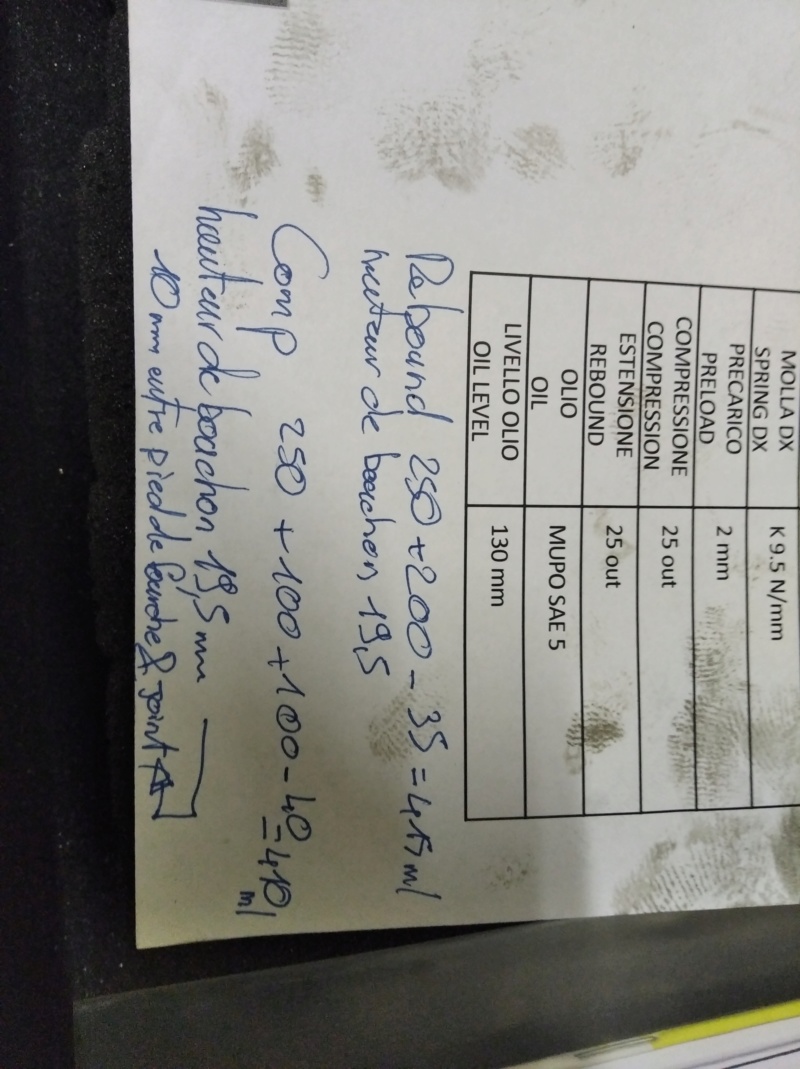 MOLLA DX
SPRING DX
K 9.5 N/mm
PRECARICO
PRELOAD
2 mm
COMPRESSIONE
COMPRESSION
25 out
ESTENSIONE
REBOUND
25 out
OLIO
OIL
MUPO SAE 5
LIVELLO OLIO
OIL LEVEL
130 mm
Rebound 250 + 200 - 35 = 415 ml
hauteur de bouchon 19,5
Comp 250 + 100 + 100 - 40 = 410 ml
hauteur de bouchon 19,5 mm
10 mm entre pied de fourche & joint